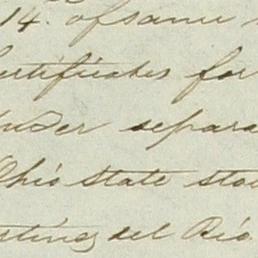 14. of same
certificates for
under separa
Ohio State sto
stines del Rio